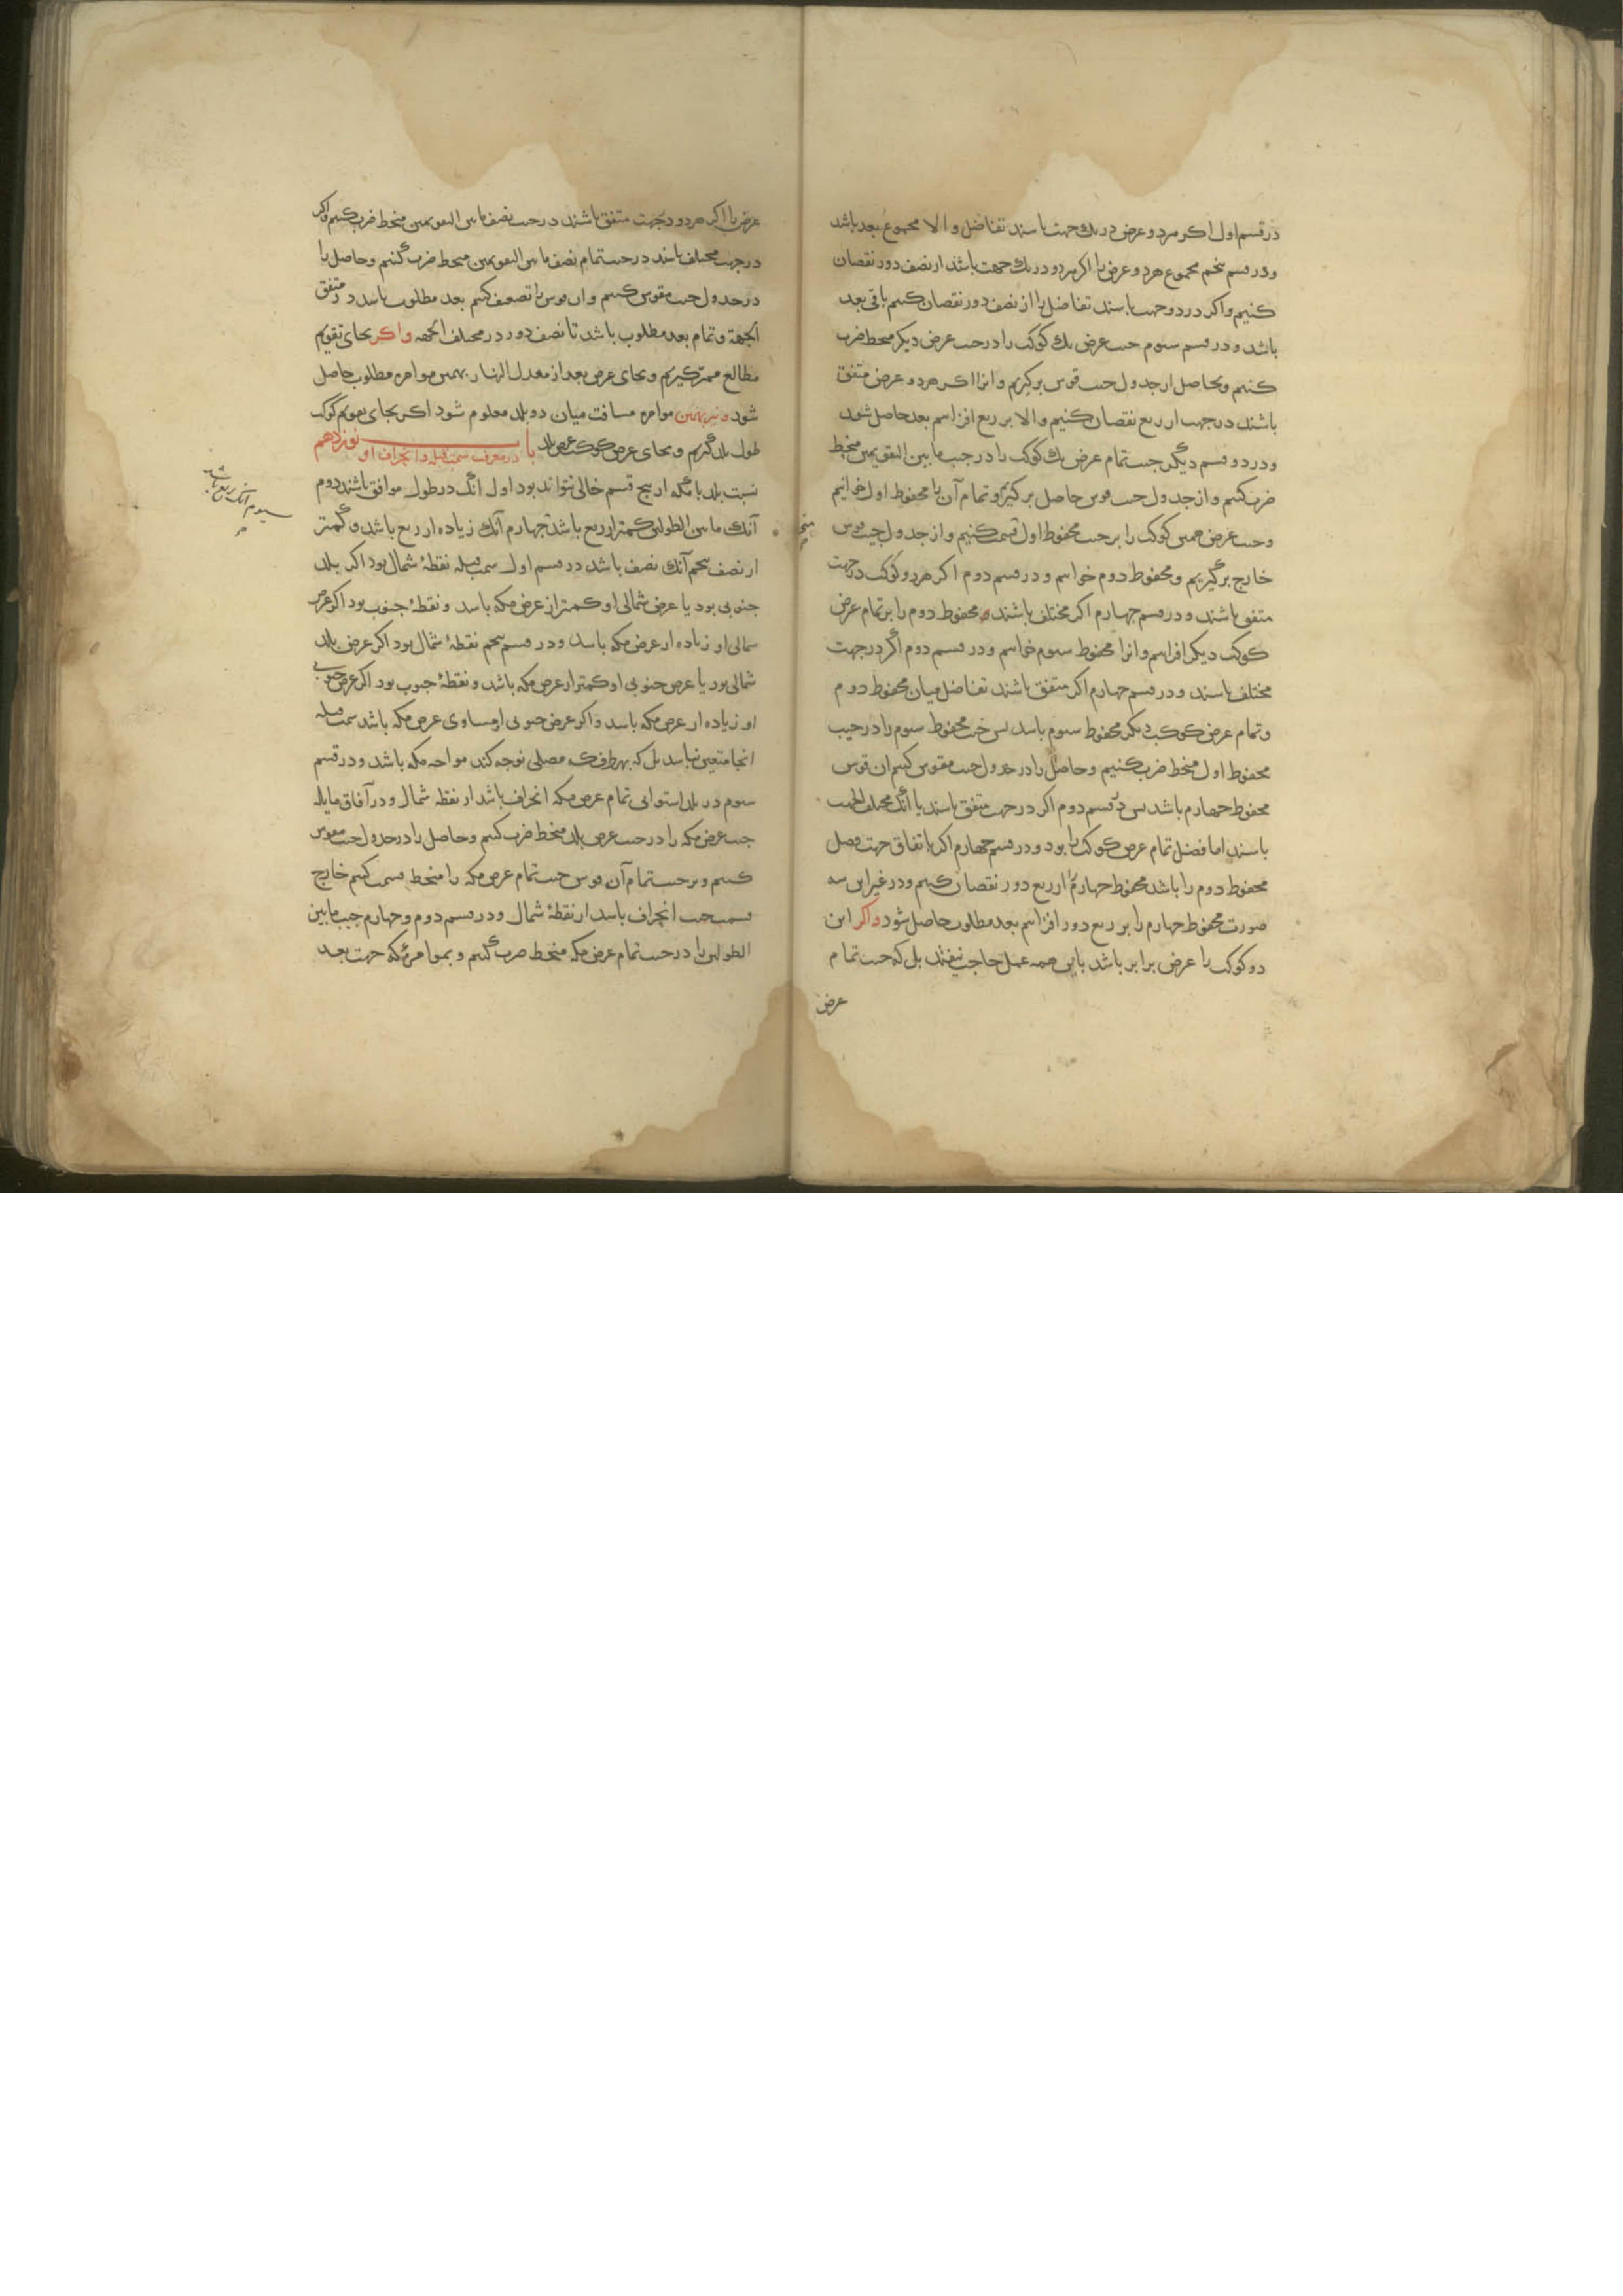 در قسم اول اکر هردو عرض در یك جهت باسند تفاضل و الا مجموع بعد باشد
ودر قسم پنجم مجموع هردو عرض را اکر هردو در یك جهت باشد از نصف دور نقصان
کنیم و اکر در دو جهت باسند تفاضل را از نصف دور نقصان کنیم باقی بعد
باشد و در قسم سوم جیب عرض یك کوکب را در جیب عرض دیکر منحط ضرب
کنیم و بحاصل از جدول جیب قوس برکیریم و انرا اکر هردو عرض متفق
باشند در جهت از ربع نقصان کنیم والا بر ربع افزاییم بعد حاصل شود
ودر دو قسم دیگر جیب تمام عرض یك کوکب را در جیب ما بین التقویمین منحط
ضرب کنیم و از جدول جیب قوس حاصل برکیریم و تمام آن را محفوظ اول خوانیم
وجیب عرض همین کوکب را بر جیب محفوظ اول قسمت کنیم و از جدول جیب قوس
خارج برگیریم و محفوظ دوم خوانیم و در قسم دوم اکر هردو کوکب در جهت
متفق باشند و در قسم چهارم اکر مختلف باشند محفوظ دوم را بر تمام عرض
کوکب دیکر افزاییم و انرا محفوظ سوم خوانیم ودر قسم دوم اگر در جهت
مختلف باسند و در قسم چهارم اکر متفق باشند تفاضل میان محفوظ دوم
و تمام عرض کوکب دیکر محفوظ سوم باسد پس جیب محفوظ سوم را در جیب
محفوظ اول منحط ضرب کنیم وحاصل را در جدول جیب مقوس کنیم ان قوس
محفوظ چهارم باشد پس در قسم دوم اکر در جهت متفق باسند یا انک مختلف الجهت
باسند اما فضل تمام عرض کوکب را بود و در قسم چهارم اکر با تفاق جهت فضل
محفوظ دوم را باشد محفوظ چهارم را از ربع دور نقصان کنیم ودر غیر این سه
صورت محفوظ چهارم را بر ربع دور افزاییم بعد مطلوب حاصل شود واکر این
دو کوکب را عرض برابر باشد باین همه عمل حاجت نیفتد بل که جیب تمام
عرض
عرض را اکر هردو در جهت متفق باشند در جیب نصف ما بین التقویمین منحط ضرب کنیم واکر
در جهت مختلف باسند در جیب تمام نصف ما بین التقویمین منحط ضرب کنیم وحاصل را
در جدول جیب مقوس کنیم وان قوس را تضعیف کنیم بعد مطلوب باسد در متفق
الجهة و تمام بعد مطلوب باشد تا نصف دور در مختلف الجهه واکر بجای تقویم
مطالع ممر کیریم و بجای عرض بعد از معدل النهار بهمین موامره مطلوب حاصل
شود و نیز بهمین موامره مسافت میان دو بلد معلوم شود اکر بجای تقویم کوکب
طول بلد گیریم و بجای عرض کوکب عرض بلد باب نوزدهم
در معرفت سمت قبله و انحراف او
نسبت بلد با مکه از پنج قسم خالی نتواند بود اول انگ در طول موافق باشند دوم
آنك ما بین الطولین کمتر از ربع باشد چهارم آنك زیاده از ربع باشد و کمتر
سیوم انک ربع باشد
از نصف پنجم آنك نصف باشد در قسم اول سمت قبله نقطۀ شمال بود اکر بلد
جنوبی بود یا عرض شمالی او کمتر از عرض مکه باسد و نقطۀ جنوب بود اکر عرض
شمالی او زیاده از عرض مکه باسد ودر قسم پنجم نقطۀ شمال بود اکر عرض بلد
شمالی بود یا عرض جنوبی او کمتر از عرض مکه باشد و نقطۀ جنوب بود اکر عرض جنوبی
او زیاده از عرض مکه باسد واکر عرض جنوبی او مساوی عرض مکه باشد سمت قبله
انجا متعین نباسد بل که بهر طرف ک مصلی توجه کند مواجه مکه باشد ودر قسم
سوم در بلد استوایی تمام عرض مکه انحراف باشد از نقطه شمال ودر آفاق مایله
جیب عرض مکه را در جیب عرض بلد منحط ضرب کنیم وحاصل را در جدول جیب مقوس
کنیم وبر جیب تمام آن قوس جیب تمام عرض مکه را منحط قسمت کنیم خارج
قسمت جیب انحراف باسد از نقطۀ شمال ودر قسم دوم وچهارم جیب ما بین
الطولین را در جیب تمام عرض مکه منحط ضرب کنیم و بموامرۀ که جهت بعد